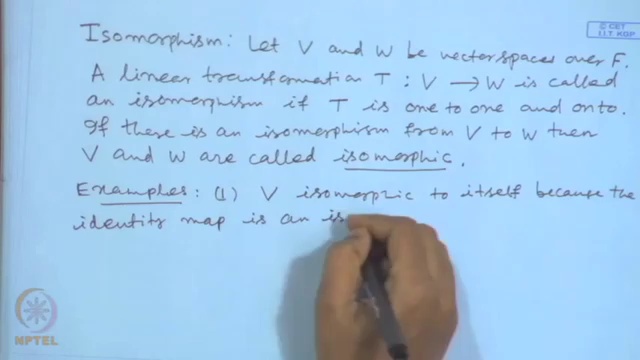 © CET
I.I.T. KGP
Isomorphism: Let V and W be vector spaces over F.
A linear transformation T : V → W is called
an isomorphism if T is one to one and onto.
If there is an isomorphism from V to W then
V and W are called isomorphic.
Examples: (1) V isomorphic to itself because the
identity map is an is
NPTEL